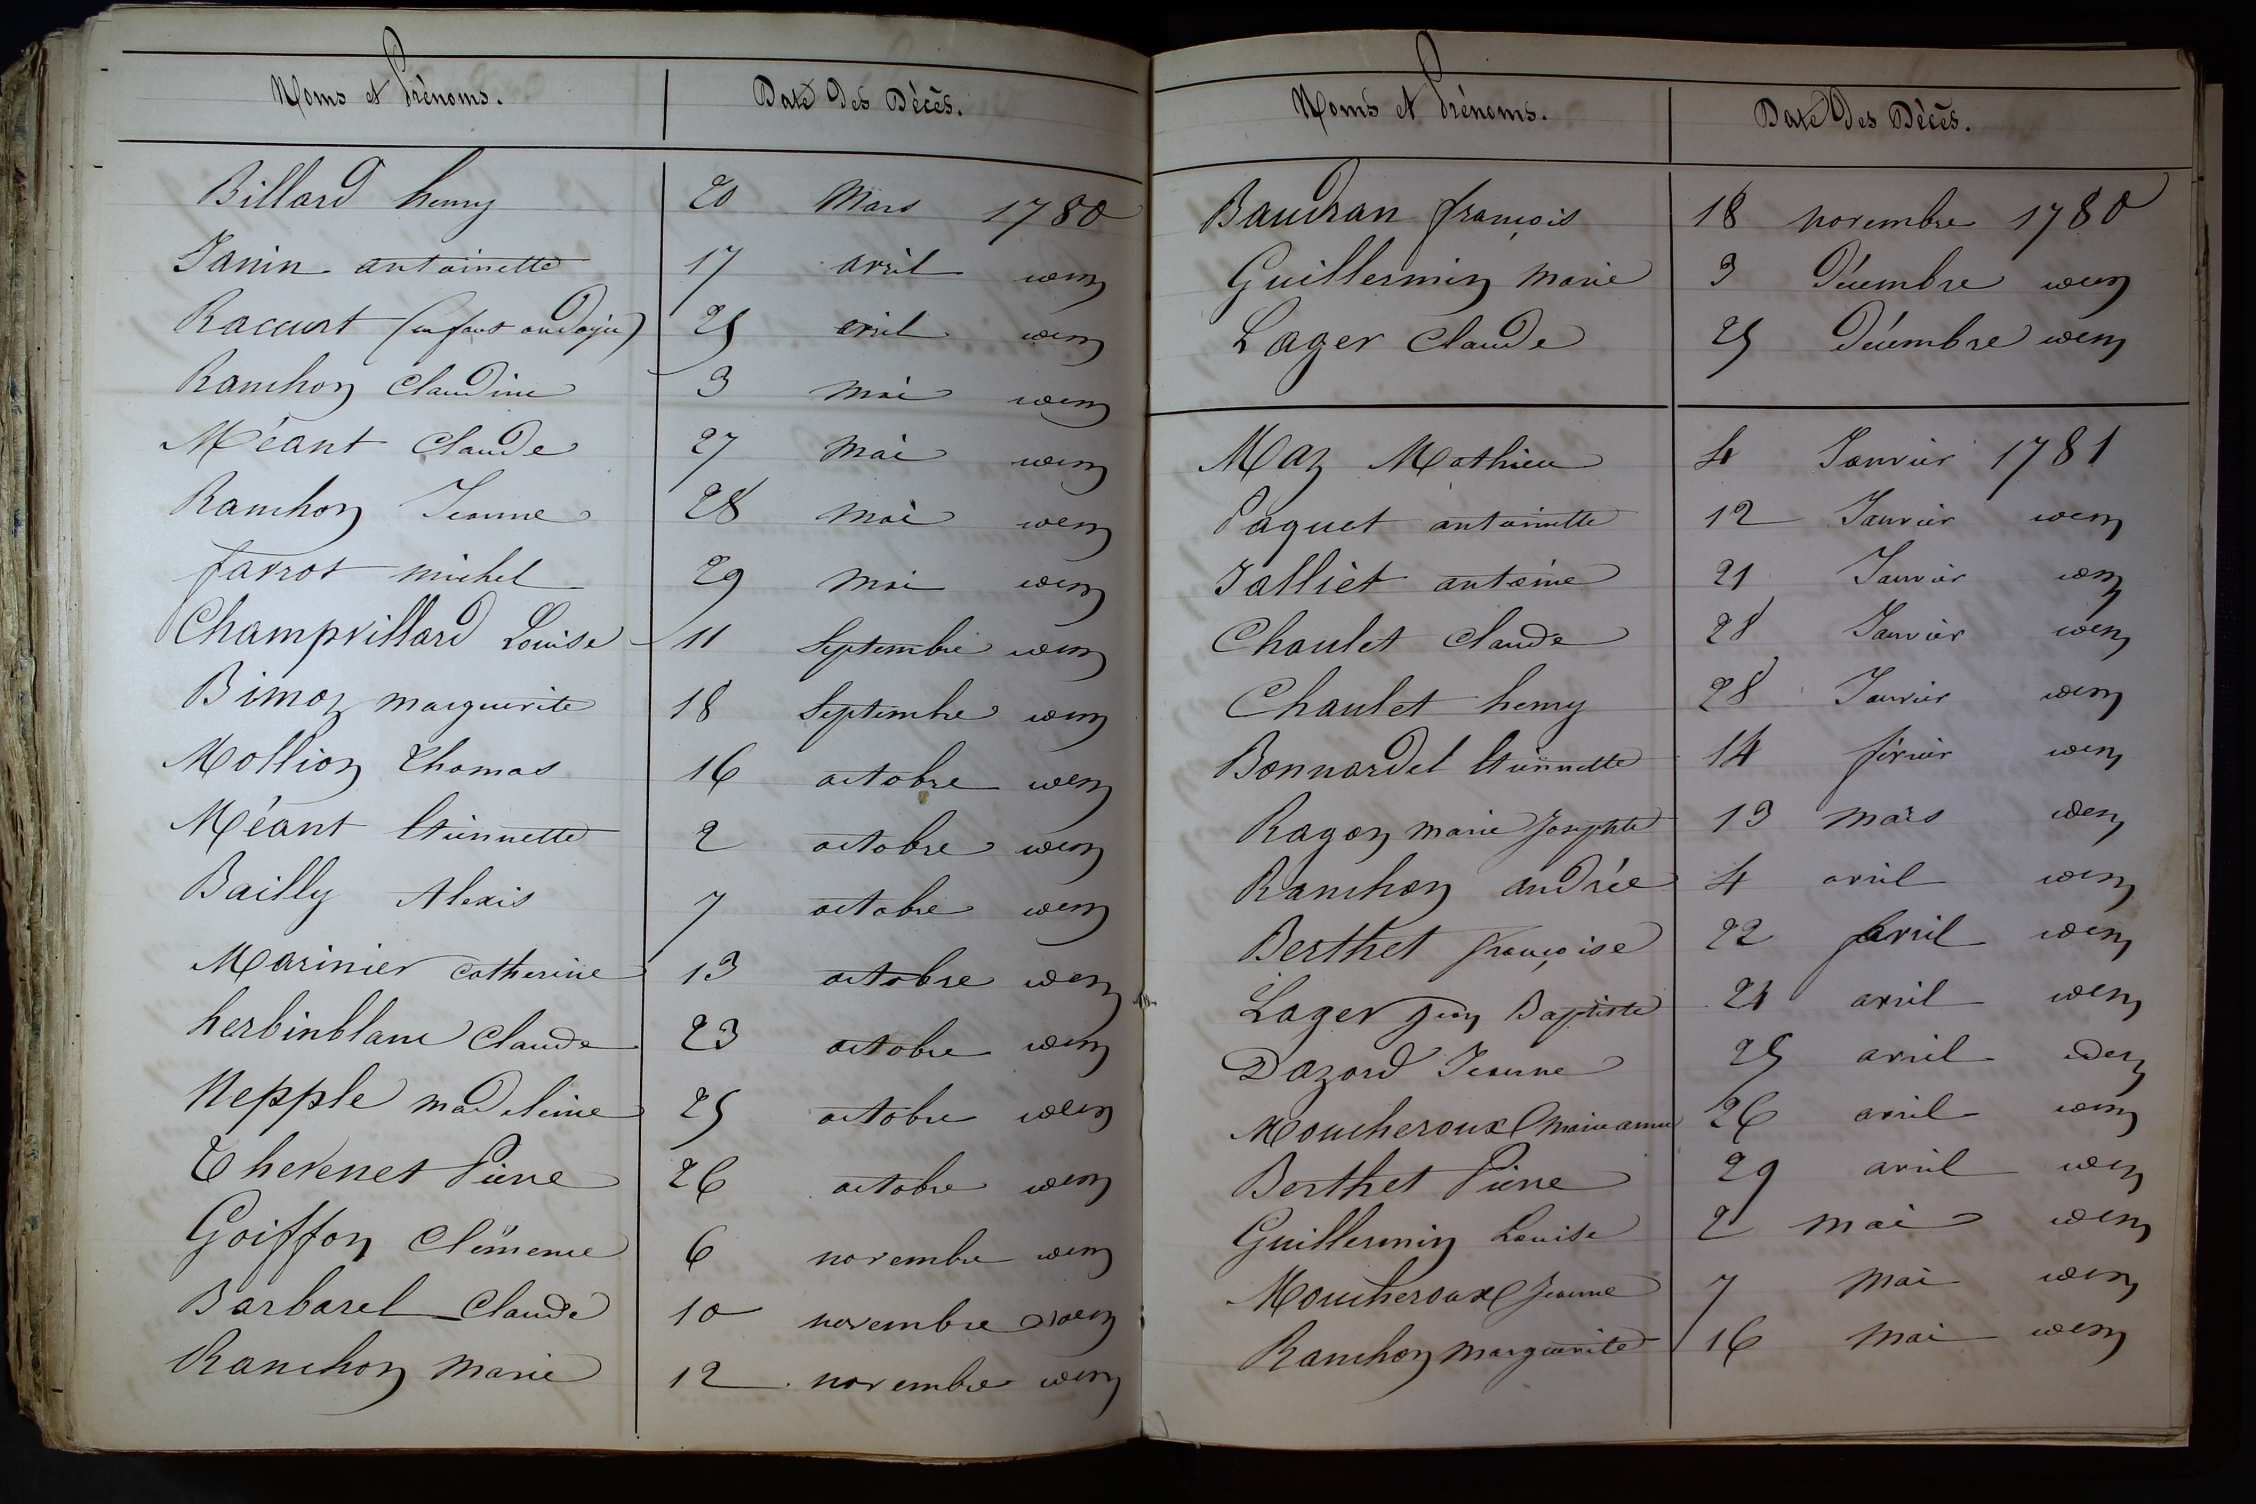 Noms et Prénoms. Date des Décès.
Billard henry 20 Mars 1780
Janin antoinette 17 avril idem
Raccurt (enfant ondoyée) 25 avril idem
Ranchon Claudine 3 mai idem
Méant Claude 27 mai idem
Ranchon Jeanne 28 mai idem
farrot michel 29 mai idem
Champvillard Louise 11 Septembre idem
Bimoz marguerite 18 Septembre idem
Mollion thomas 16 octobre idem
Méant Etiennette 2 octobre idem
Bailly Alexis 7 octobre idem
Marinier catherine 13 octobre idem
herbinblanc Claude 23 octobre idem
Nepple madeleine 25 octobre idem
Thevenet Pierre 26 octobre idem
Goiffon Clémence 6 novembre idem
Barbarel Claude 10 novembre idem
Ranchon Marie 12 novembre idem
Noms et Prénoms. Date des Décès.
Baudran françois 18 novembre 1780
Guillermin Marie 3 Décembre idem
Lager Claude 25 Décembre idem
Maz Mathieu 4 Janvier 1781
Paquet antoinette 12 Janvier idem
Jalliet antoine 21 Janvier idem
Chaulet Claude 28 Janvier idem
Chaulet henry 28 Janvier idem
Bonnardel Etiennette 14 février idem
Ragon marie Josephte 13 mars idem
Ranchon andrée 4 avril idem
Berthet françoise 22 avril idem
Lager Jean Baptiste 24 avril idem
Dazord Jeanne 25 avril idem
Moucheroux marie anne 26 avril idem
Berthet Pierre 29 avril idem
Guillermin Louise 2 mai idem
Moucheroux Jeanne 7 mai idem
Ranchon marguerite 16 mai idem